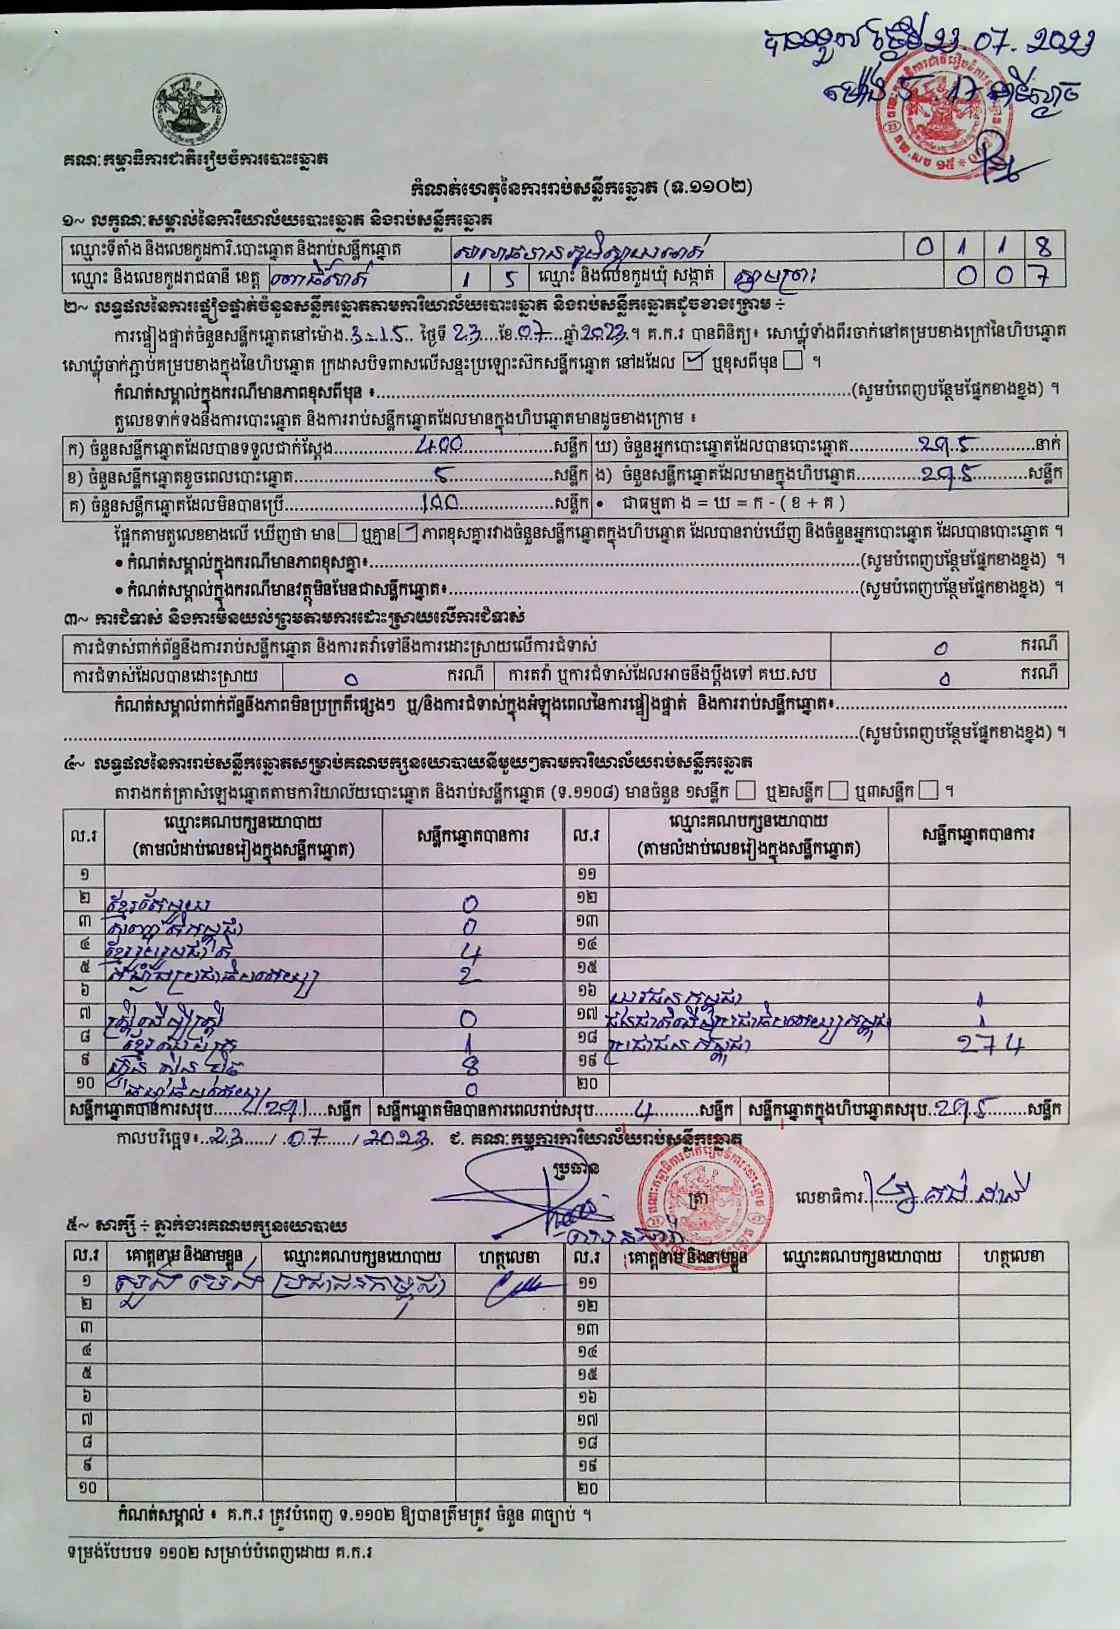 បានទទួល ថ្ងៃទី 23.07.2023
ម៉ោង 5 17 នាទីល្ងាច
គណៈកម្មាធិការជាតិរៀបចំការបោះឆ្នោត
កំណត់ហេតុនៃការរាប់សន្លឹកឆ្នោត (ទ.១១០២)
១~ លក្ខណៈសម្គាល់នៃការិយាល័យបោះឆ្នោត និងរាប់សន្លឹកឆ្នោត
ឈ្មោះទីតាំង និងលេខកូដការិ.បោះឆ្នោត និងរាប់សន្លឹកឆ្នោត 0 1 1 8
ឈ្មោះ និងលេខកូដរាជធានី ខេត្ត ពោធិ៍សាត់ 1 5 ឈ្មោះ និងលេខកូដឃុំ សង្កាត់ 0 0 7
២~ លទ្ធផលនៃការផ្ទៀងផ្ទាត់ចំនួនសន្លឹកឆ្នោតតាមការិយាល័យបោះឆ្នោត និងរាប់សន្លឹកឆ្នោតដូចខាងក្រោម ÷
ការផ្ទៀងផ្ទាត់ចំនួនសន្លឹកឆ្នោតនៅម៉ោង 3-15 ថ្ងៃទី 23 ខែ 07 ឆ្នាំ 2023។ គ.ក.រ បានពិនិត្យ៖ សោឃ្លុំទាំងពីរចាក់នៅគម្របខាងក្រៅនៃហិបឆ្នោត
សោឃ្លុំចាក់ភ្ជាប់គម្របខាងក្នុងនៃហិបឆ្នោត ក្រដាសបិទពាសលើសន្ទះប្រឡោះស៊កសន្លឹកឆ្នោត នៅដដែល ☑ ឬខុសពីមុន ☐ ។
កំណត់សម្គាល់ក្នុងករណីមានភាពខុសពីមុន ៖ (សូមបំពេញបន្ថែមផ្នែកខាងខ្នង) ។
តួលេខទាក់ទងនឹងការបោះឆ្នោត និងការរាប់សន្លឹកឆ្នោតដែលមានក្នុងហិបឆ្នោតមានដូចខាងក្រោម ៖
ក) ចំនួនសន្លឹកឆ្នោតដែលបានទទួលជាក់ស្តែង 400 សន្លឹក ឃ) ចំនួនអ្នកបោះឆ្នោតដែលបានបោះឆ្នោត 295 នាក់
ខ) ចំនួនសន្លឹកឆ្នោតខូចពេលបោះឆ្នោត 5 សន្លឹក ង) ចំនួនសន្លឹកឆ្នោតដែលមានក្នុងហិបឆ្នោត 295 សន្លឹក
គ) ចំនួនសន្លឹកឆ្នោតដែលមិនបានប្រើ 100 សន្លឹក • ជាធម្មតា ង = ឃ = ក - ( ខ + គ )
ផ្អែកតាមតួលេខខាងលើ ឃើញថា មាន ☐ ឬគ្មាន ☑ ភាពខុសគ្នារវាងចំនួនសន្លឹកឆ្នោតក្នុងហិបឆ្នោត ដែលបានរាប់ឃើញ និងចំនួនអ្នកបោះឆ្នោត ដែលបានបោះឆ្នោត ។
• កំណត់សម្គាល់ក្នុងករណីមានភាពខុសគ្នា៖ (សូមបំពេញបន្ថែមផ្នែកខាងខ្នង) ។
• កំណត់សម្គាល់ក្នុងករណីមានវត្ថុមិនមែនជាសន្លឹកឆ្នោត៖ (សូមបំពេញបន្ថែមផ្នែកខាងខ្នង) ។
៣~ ការជំទាស់ និងការមិនយល់ព្រមតាមការដោះស្រាយលើការជំទាស់
ការជំទាស់ពាក់ព័ន្ធនឹងការរាប់សន្លឹកឆ្នោត និងការតវ៉ាទៅនឹងការដោះស្រាយលើការជំទាស់ 0 ករណី
ការជំទាស់ដែលបានដោះស្រាយ 0 ករណី ការតវ៉ា ឬការជំទាស់ដែលអាចនឹងប្តឹងទៅ គឃ.សប 0 ករណី
កំណត់សម្គាល់ពាក់ព័ន្ធនឹងភាពមិនប្រក្រតីផ្សេងៗ ឬ/និងការជំទាស់ក្នុងអំឡុងពេលនៃការផ្ទៀងផ្ទាត់ និងការរាប់សន្លឹកឆ្នោត៖
(សូមបំពេញបន្ថែមផ្នែកខាងខ្នង) ។
៤~ លទ្ធផលនៃការរាប់សន្លឹកឆ្នោតសម្រាប់គណបក្សនយោបាយនីមួយៗតាមការិយាល័យរាប់សន្លឹកឆ្នោត
តារាងកត់ត្រាសំឡេងឆ្នោតតាមការិយាល័យបោះឆ្នោត និងរាប់សន្លឹកឆ្នោត (ទ.១១០៨) មានចំនួន ១សន្លឹក ☐ ឬ២សន្លឹក ☐ ឬ៣សន្លឹក ☐ ។
ល.រ ឈ្មោះគណបក្សនយោបាយ (តាមលំដាប់លេខរៀងក្នុងសន្លឹកឆ្នោត) សន្លឹកឆ្នោតបានការ ល.រ ឈ្មោះគណបក្សនយោបាយ (តាមលំដាប់លេខរៀងក្នុងសន្លឹកឆ្នោត) សន្លឹកឆ្នោតបានការ
១ ១១
២ ខ្មែរតែមួយ 0 ១២
៣ 0 ១៣
៤ ខ្មែររួបរួមជាតិ 4 ១៤
៥ សំប្រជាធិបតេយ្យ 2 ១៥
៦ ១៦ យុវជនកម្ពុជា 1
៧ ស្ត្រីដើម្បីស្ត្រី 0 ១៧ ជនជាតិដើមប្រជាធិបតេយ្យកម្ពុជា 1
៨ 1 ១៨ ប្រជាជនកម្ពុជា 274
៩ ហ្វ៊ុនស៊ិនប៉ិច 8 ១៩
១០ 0 ២០
សន្លឹកឆ្នោតបានការសរុប 291 សន្លឹក សន្លឹកឆ្នោតមិនបានការពេលរាប់សរុប 4 សន្លឹក សន្លឹកឆ្នោតក្នុងហិបឆ្នោតសរុប 295 សន្លឹក
កាលបរិច្ឆេទ៖ 23 / 07 / 2023 ជ. គណៈកម្មការការិយាល័យរាប់សន្លឹកឆ្នោត
ប្រធាន ត្រា លេខាធិការ
៥~ សាក្សី ÷ ភ្នាក់ងារគណបក្សនយោបាយ
ល.រ គោត្តនាម និងនាមខ្លួន ឈ្មោះគណបក្សនយោបាយ ហត្ថលេខា ល.រ គោត្តនាម និងនាមខ្លួន ឈ្មោះគណបក្សនយោបាយ ហត្ថលេខា
១ ប្រជាជនកម្ពុជា ១១
២ ១២
៣ ១៣
៤ ១៤
៥ ១៥
៦ ១៦
៧ ១៧
៨ ១៨
៩ ១៩
១០ ២០
កំណត់សម្គាល់ ៖ គ.ក.រ ត្រូវបំពេញ ទ.១១០២ ឱ្យបានត្រឹមត្រូវ ចំនួន ៣ច្បាប់ ។
ទម្រង់បែបបទ ១១០២ សម្រាប់បំពេញដោយ គ.ក.រ